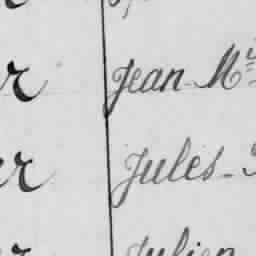 r Jean Mi
er Jules-
r Julien